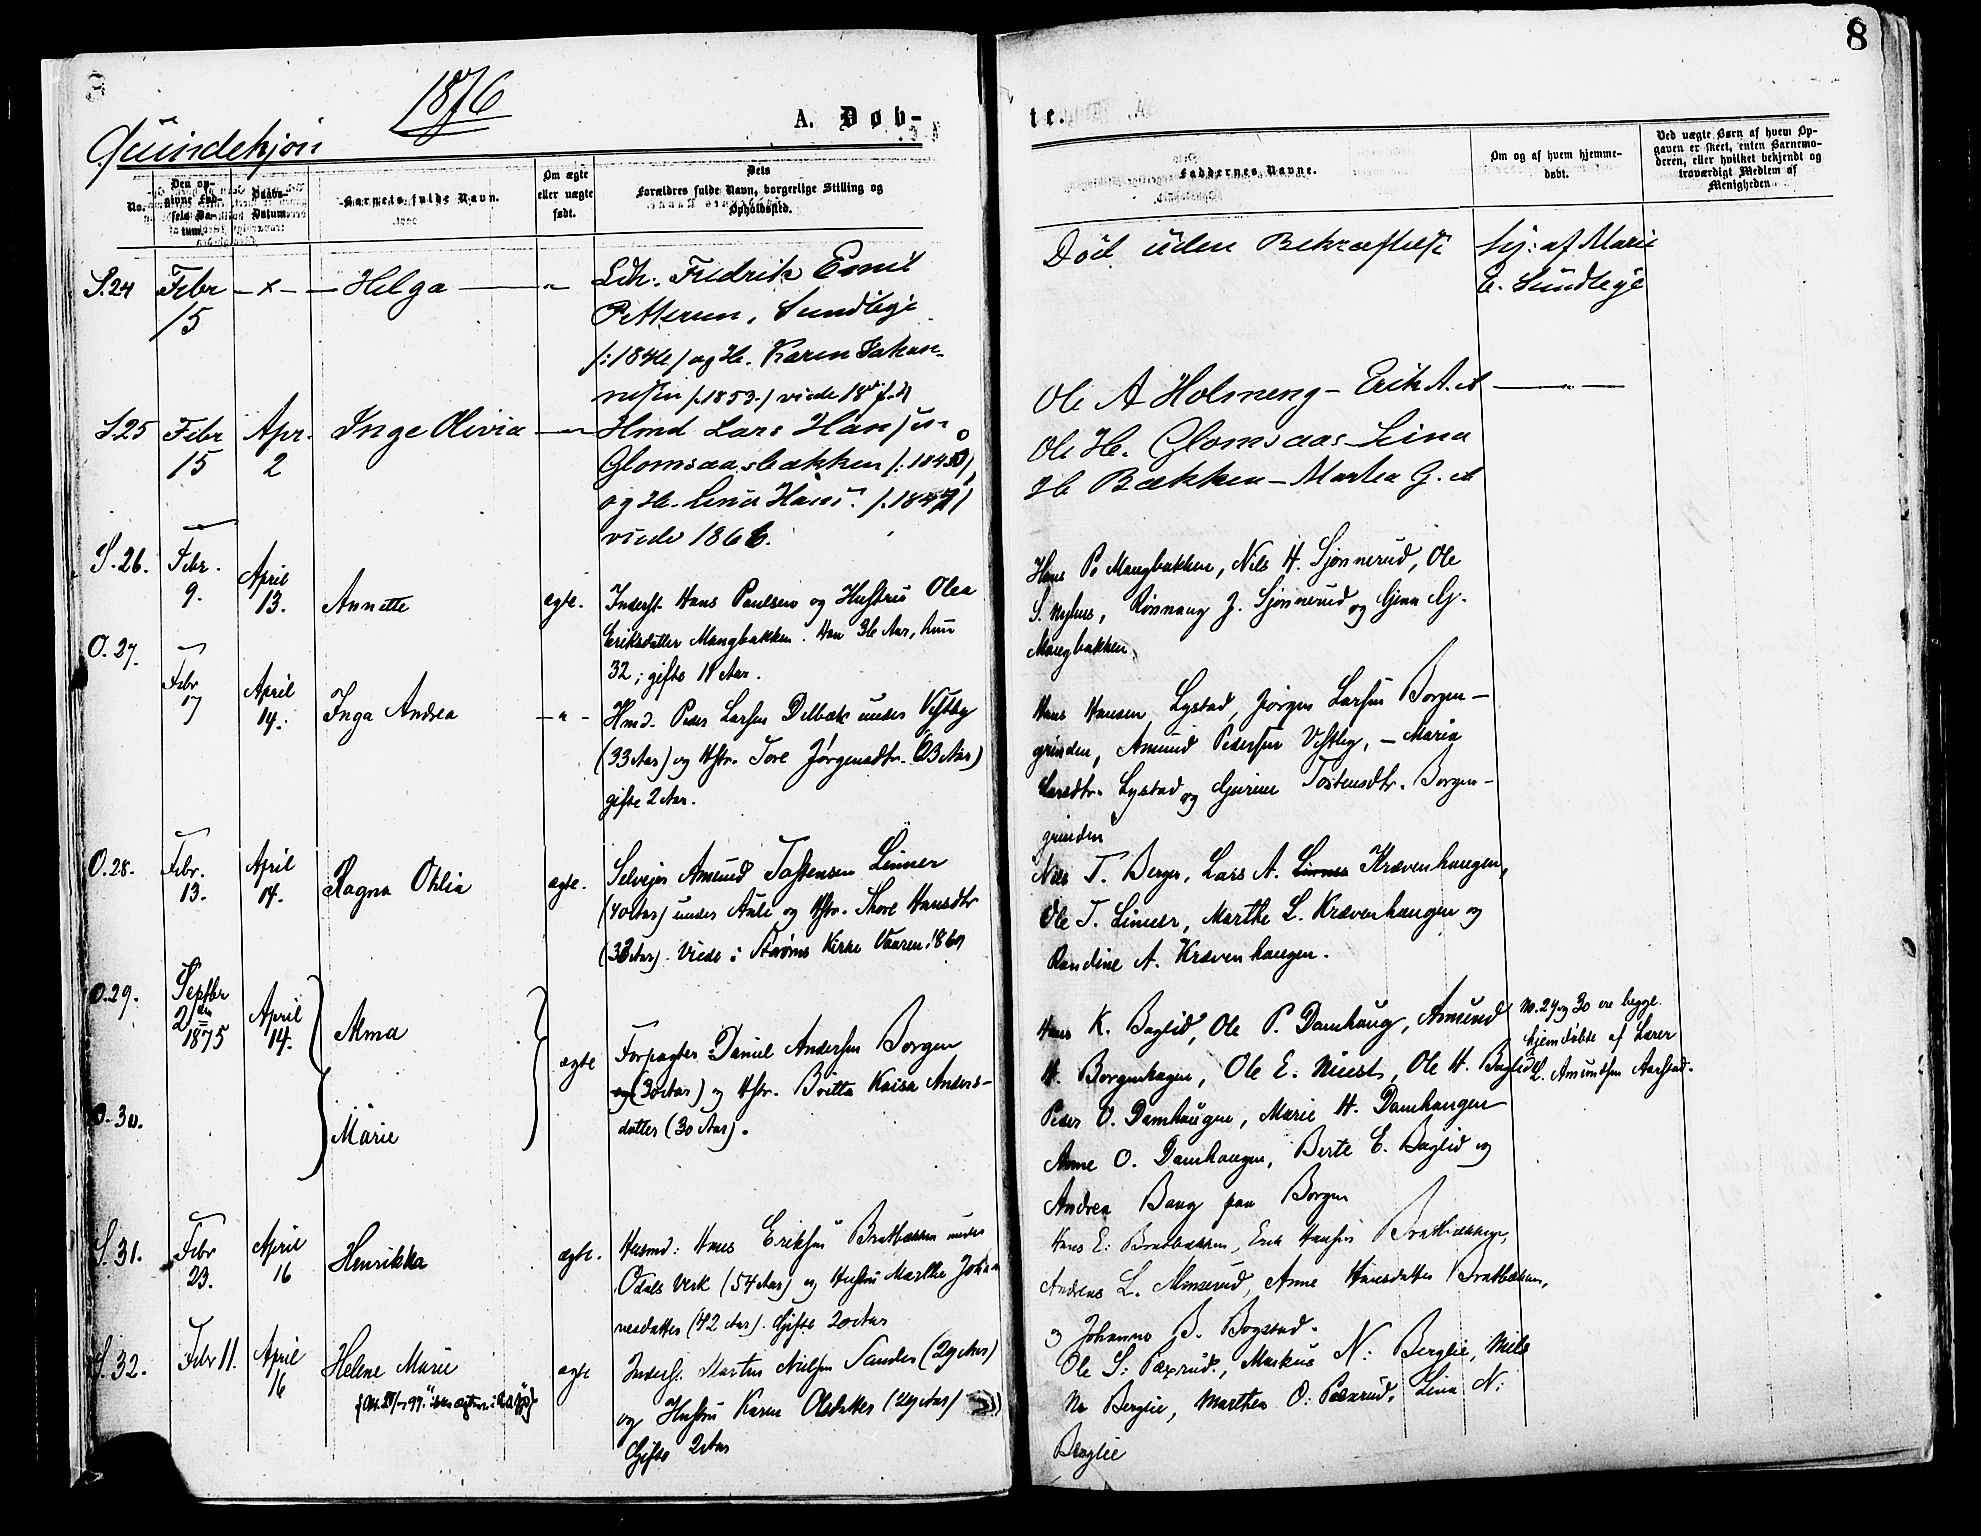 8
1876
Quindekjön
A. Døb-
No.
Den op-
givne Fød-
sels Da-
tum.
Daabs-
Datum.
Barnets fulde Navn.
Om ægte
eller uægte
født.
Dets
Forældres fulde Navn, borgerlige Stilling og
Opholdssted.
S.24 Febr - x - Helga — " Fredrik Emil
15 Pettersen, Sundleye
/:1846/ og H. Karen Johan-
/:1853/ viede 18
S.25 Febr Apr. Inge Olivia — " Hmd Lars Hansen
15 2 Glomsaasbakken
og H. Lina Hans
viede 1866.
S.26. Febr. April
9. 13. Annette ægte. Inderst Hans Paulsen og Hustru Olea
Eriksdatter Mangbakken. Han 36 Aar, hun
32; gifte 11 Aar.
O.27. Febr April
7 14. Inga Andrea - " - Hmd. Peder Larsen Delbæk under Vestby
(33 Aar) og Hstr. Tore Jørgensdtr. (23 Aar)
gifte 2 Aar.
O.28. Febr. April
13. 14. Ragna Othlia ægte. Selvejer Amund Tostensen Linner
(40 Aar) under Auli og Hstr. Thore Hansdtr
(32 Aar). Viede i Strøms Kirke Vaaren 1869
O.29. Septbr
2den April
1875 14. Alma
ægte Forpagter Daniel Andersen Borgen
og (30 Aar) og Hstr. Britta Kaisa Anders-
datter (30 Aar).
O.30. Marie
S.31. Febr April
23. 16 Henrikka ægte. Husmd: Hans Eriksen Bratbakken under
Odals Verk (54 Aar) og Hustru Marthe Johan
nesdatter (42 Aar). Gifte 20 Aar
S.32. Febr 11. April
16 Helene Marie ægte Inderst. Martin Nielsen Sander (29 Aar)
og Hustru Karen Olsdatter (29 Aar)
Gifte 2 Aar
8
te.
Faddernes Navne.
Om og af hvem hjemme-
døbt.
Ved uægte Børn af hvem Op-
gaven er skeet, enten Barnemo-
deren, eller hvilket bekjendt og
troværdigt Medlem af
Menigheden
Død uden Bekræftelse hj: af Marie
E. Sundleye
Ole A Holmeng - Erik A. " — " —
Ole H. Glomsaas - Lina
H Bækken - Marten G. "
Hans P. Mangbakken, Nils H. Sjønnerud, Ole
S. Nyhus, Rønnaug J. Sjønnerud og Gjina G.
Mangbakken.
Hans Hansen Lystad, Jørgen Larsen Borgen-
grinden, Amund Pedersen Vestby, - Maria
Larsdtr. Lystad og Gurine Tostensdtr. Borgen-
grinden
Nils T. Berger, Lars A. Linner Krævenhaugen,
Ole T. Linner, Marthe L. Krævenhaugen og
Randine A. Krævenhaugen.
Hans K. Baglid, Ole P. Damhaug, Amund
H. Borgenhagen, Ole E. Niest, Ole H. Baglid
Peder O. Damhaugen, Marie H. Damhaugen
Anne O. Damhaugen, Berte E. Baglid og
Andrea Bang paa Borgen
No. 29 og 30 ere begge
hjemdøbte af Lærer
L. Amundsen Aarstad.
Hans E. Bratbakken, Erik Hansen Bratbakken,
Andreas L. Monserud, Anne Hansdatter Bratbakken,
og Johanne B. Bogstad.
Ole S: Paxrud, Markus N: Berglie, Niels
N. Berglie, Marthea O: Paxrud, Lina N:
Berglie